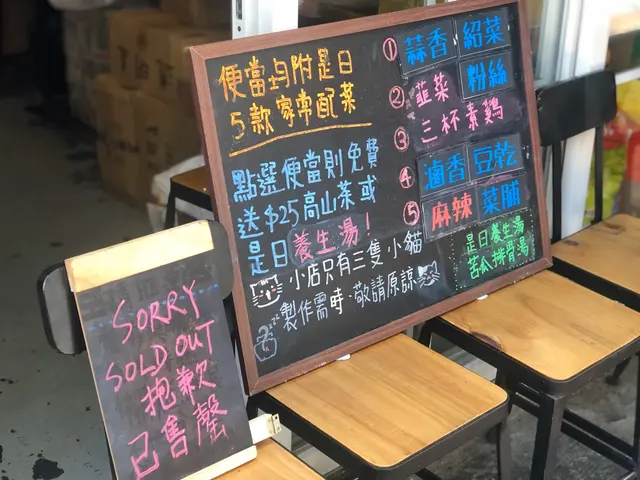 便當均附是日
5款家常配菜
點選便當則免費
送$25高山茶或
是日養生湯!
小店只有三隻小貓
製作需時,敬請原諒
① 蒜香 紹菜
粉絲
② 韮菜
③ 三杯素鷄
④ 滷香 豆乾
⑤ 麻辣 菜脯
是日養生湯
苦瓜排骨湯
SORRY
SOLD OUT
抱歉
已售罄